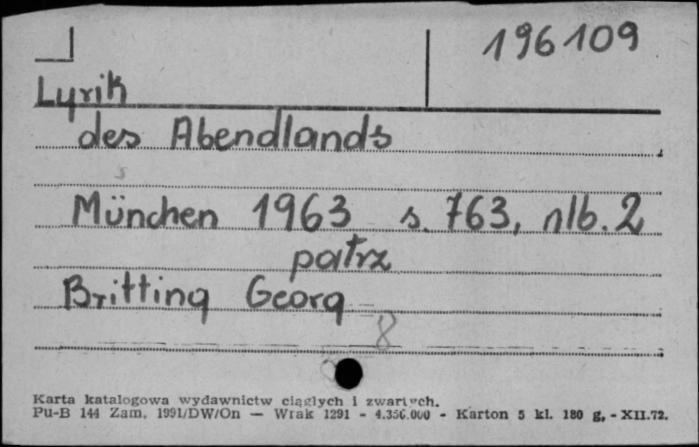 196109
Lyrik
des Abendlands
München 1963 s. 763, nlb. 2
patrz
Britting Georg
8
Karta katalogowa wydawnictw ciągłych i zwartych.
Pu-B 144 Zam. 1991/DW/On — Wrak 1291 - 4.356.000 - Karton 5 kl. 180 g, - XII.72.